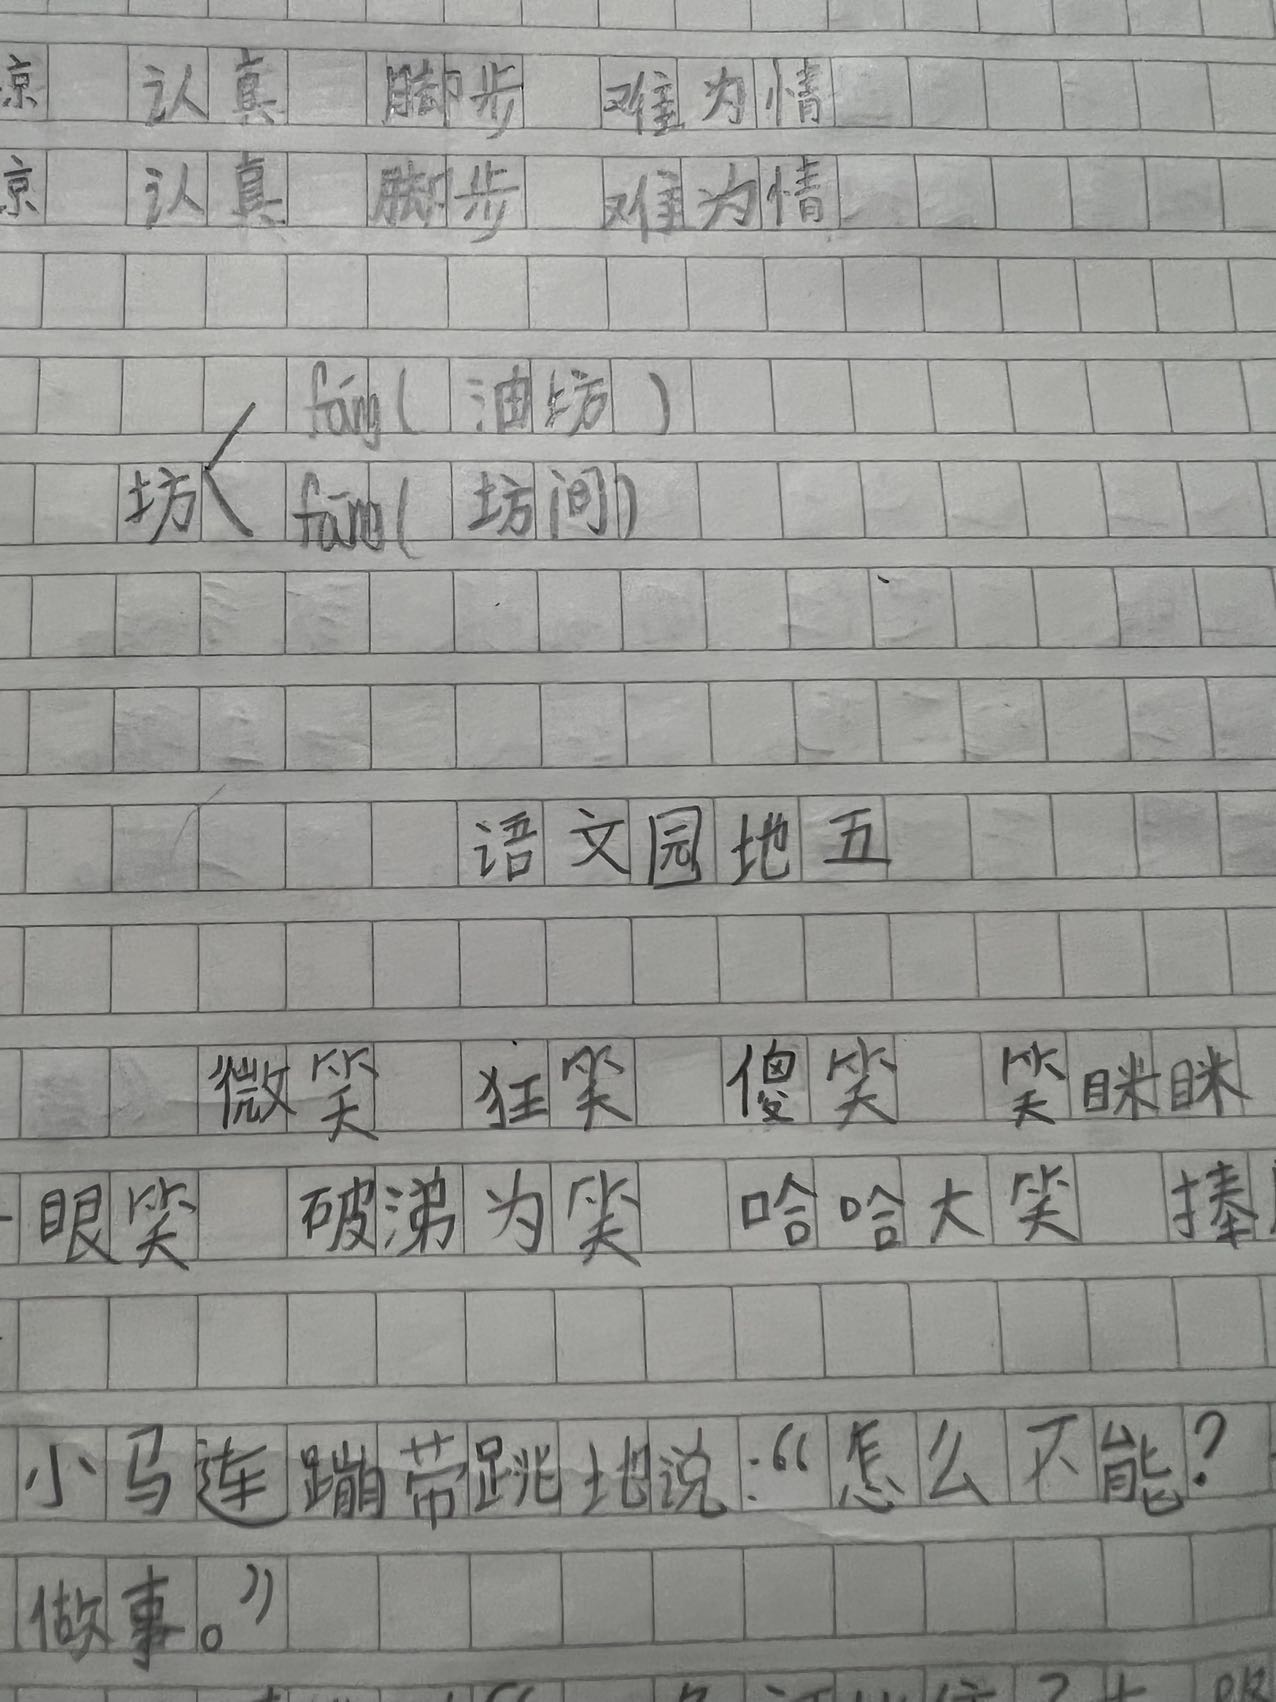 京 认真 脚步 难为情
京 认真 脚步 难为情
fáng( 油坊 )
坊
fāng( 坊间)
语文园地五
微笑 狂笑 傻笑 笑眯眯
眼笑 破涕为笑 哈哈大笑 捧
小马连蹦带跳地说:“怎么不能?
做事。”